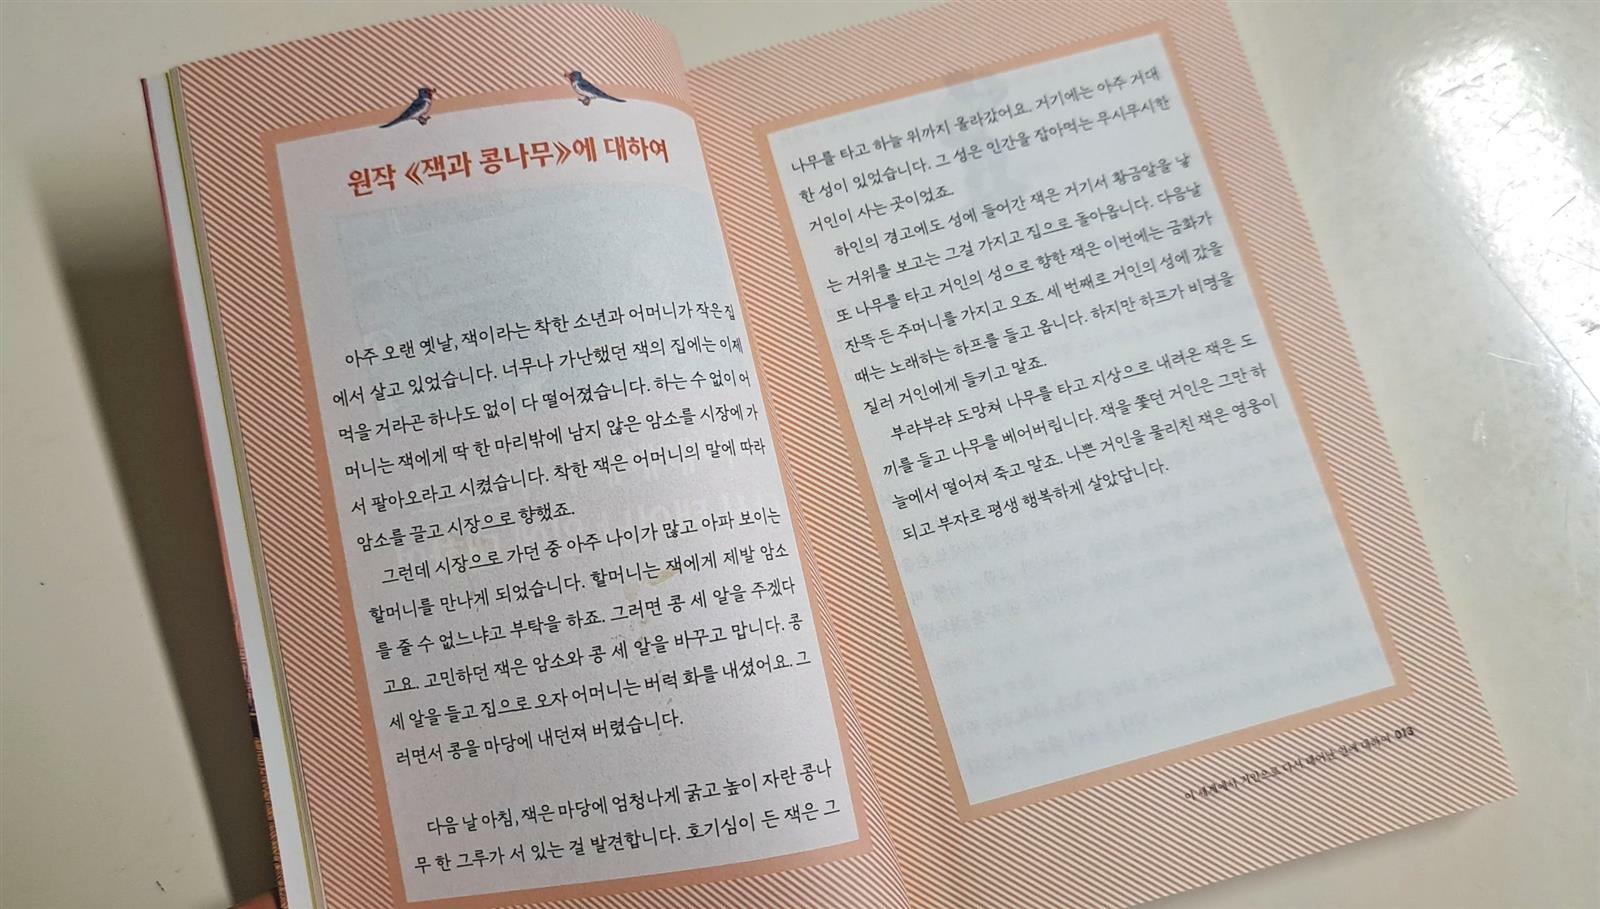 원작 《잭과 콩나무》에 대하여
아주 오랜 옛날, 잭이라는 착한 소년과 어머니가 작은 집
에서 살고 있었습니다. 너무나 가난했던 잭의 집에는 이제
먹을 거라곤 하나도 없이 다 떨어졌습니다. 하는 수 없이 어
머니는 잭에게 딱 한 마리밖에 남지 않은 암소를 시장에 가
서 팔아오라고 시켰습니다. 착한 잭은 어머니의 말에 따라
암소를 끌고 시장으로 향했죠.
그런데 시장으로 가던 중 아주 나이가 많고 아파 보이는
할머니를 만나게 되었습니다. 할머니는 잭에게 제발 암소
를 줄 수 없느냐고 부탁을 하죠. 그러면 콩 세 알을 주겠다
고요. 고민하던 잭은 암소와 콩 세 알을 바꾸고 맙니다. 콩
세 알을 들고 집으로 오자 어머니는 버럭 화를 내셨어요. 그
러면서 콩을 마당에 내던져 버렸습니다.
다음 날 아침, 잭은 마당에 엄청나게 굵고 높이 자란 콩나
무 한 그루가 서 있는 걸 발견합니다. 호기심이 든 잭은 그
나무를 타고 하늘 위까지 올라갔어요. 거기에는 아주 거대
한 성이 있었습니다. 그 성은 인간을 잡아먹는 무시무시한
거인이 사는 곳이었죠.
하인의 경고에도 성에 들어간 잭은 거기서 황금알을 낳
는 거위를 보고는 그걸 가지고 집으로 돌아옵니다. 다음날
또 나무를 타고 거인의 성으로 향한 잭은 이번에는 금화가
잔뜩 든 주머니를 가지고 오죠. 세 번째로 거인의 성에 갔을
때는 노래하는 하프를 들고 옵니다. 하지만 하프가 비명을
질러 거인에게 들키고 말죠.
부랴부랴 도망쳐 나무를 타고 지상으로 내려온 잭은 도
끼를 들고 나무를 베어버립니다. 잭을 쫓던 거인은 그만 하
늘에서 떨어져 죽고 말죠. 나쁜 거인을 물리친 잭은 영웅이
되고 부자로 평생 행복하게 살았답니다.
이 세계에서 거인으로 다시 태어난 일에 대하여 013